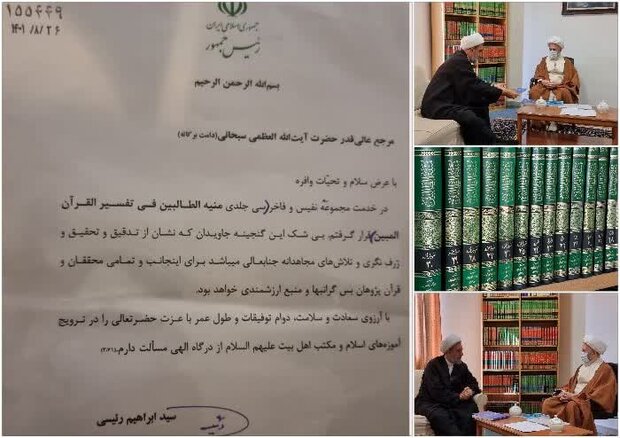 ۱۵۵۴۴۹
۱۴۰۱/۸/۲۶
جمهوری اسلامی ایران
رئیس جمهور
بسم‌الله الرحمن الرحیم
مرجع عالی‌قدر حضرت آیت‌الله العظمی سبحانی (دامت برکاته)
با عرض سلام و تحیّات وافره
در خدمت مجموعهٔ نفیس و فاخر سی جلدی منیه الطالبین فی تفسیر القرآن
المبین قرار گرفتم. بی شک این گنجینه جاویدان که نشان از تدقیق و تحقیق و
ژرف نگری و تلاش‌های مجاهدانه جنابعالی میباشد برای اینجانب و تمامی محققان و
قرآن پژوهان بس گرانبها و منبع ارزشمندی خواهد بود.
با آرزوی سعادت و سلامت، دوام توفیقات و طول عمر با عزت حضرتعالی را در ترویج
آموزه‌های اسلام و مکتب اهل بیت علیهم السلام از درگاه الهی مسألت دارم.
سید ابراهیم رئیسی